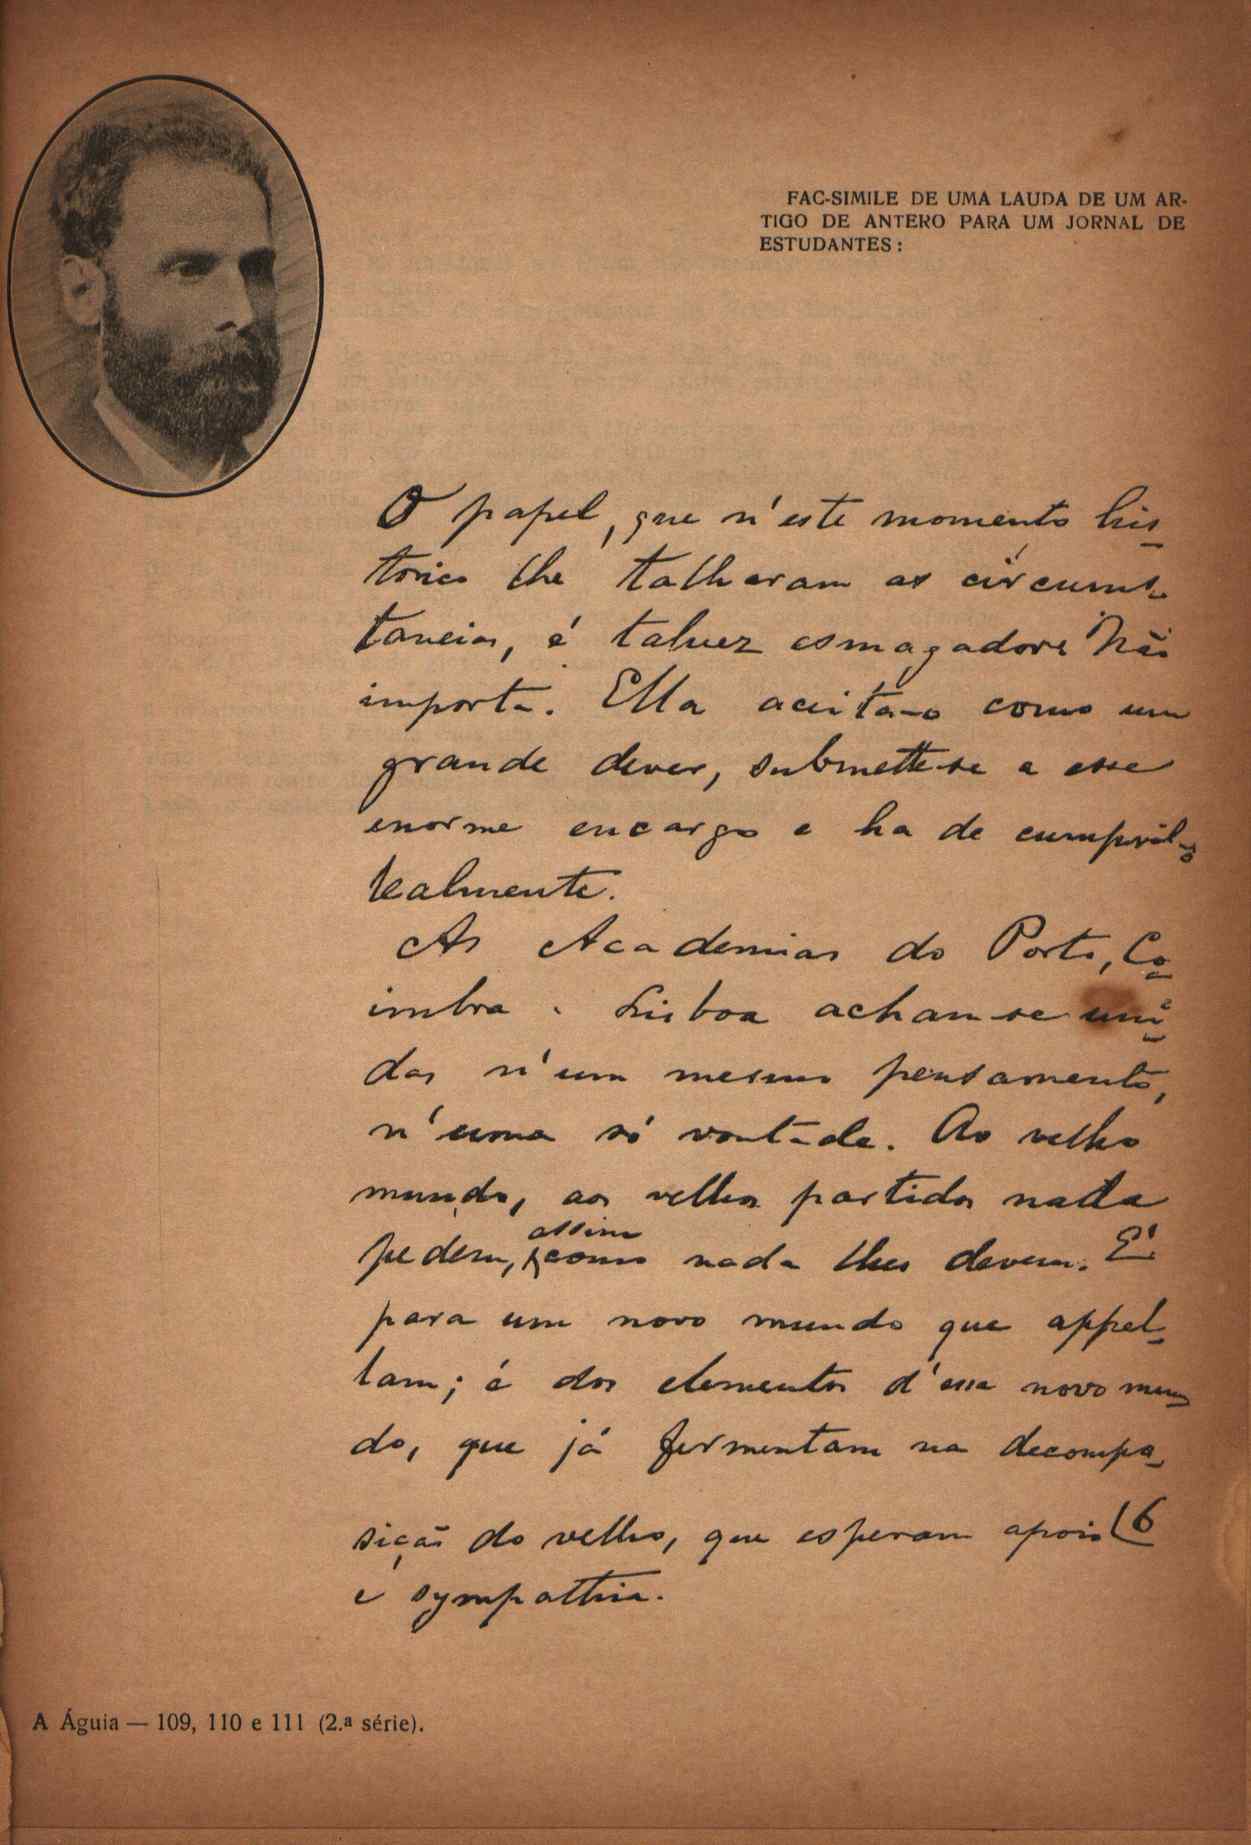 FAC-SIMILE DE UMA LAUDA DE UM AR-
TIGO DE ANTERO PARA UM JORNAL DE
ESTUDANTES:
O papel, que n'este momento his-
torico lhe talharam as circums-
tancias, é talvez esmagador: Não
importa. Ella aceita-o como um
grande dever, submette-se a esse
enorme encargo e ha de cumpril-o
lealmente.
As Academias do Porto, Co-
imbra e Lisboa acham-se uni-
das n'um mesmo pensamento,
n'uma só vontade. Ao velho
mundo, aos velhos partidos nada
assim
pedem, como nada lhes devem. É
para um novo mundo que appel-
lam; é dos elementos d'esse novo mun-
do, que já fermentam na decompo-
sição do velho, que esperam apoio
6
e sympathia.
A Águia — 109, 110 e 111 (2.ª série).